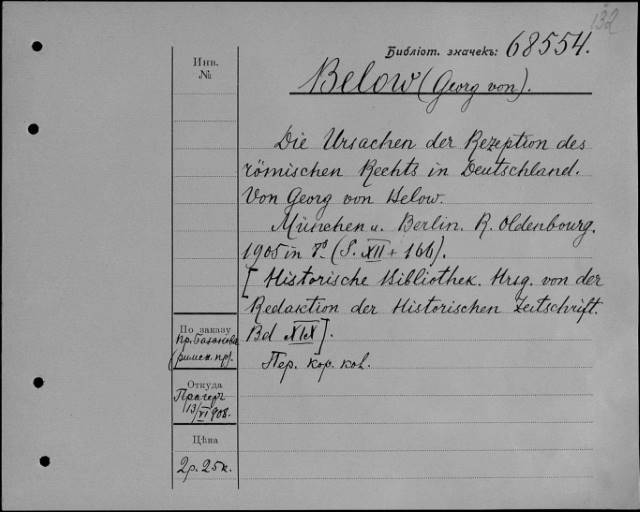 132
Библіот. значекъ: 68554.
Инв.
№
Below (Georg von).
Die Ursachen der Rezeption des
römischen Rechts in Deutschland.
Von Georg von Below.
München u. Berlin. R. Oldenbourg.
1905 in 8° (S. XII + 166).
[Historische Bibliothek. Hrsg. von der
Redaktion der Historischen Zeitschrift.
Bd XIX].
Пер. кор. кол.
По заказу
пр.
(римск. пр.)
Откуда
Прагеръ
13/VI 908.
Цѣна
2р. 25к.